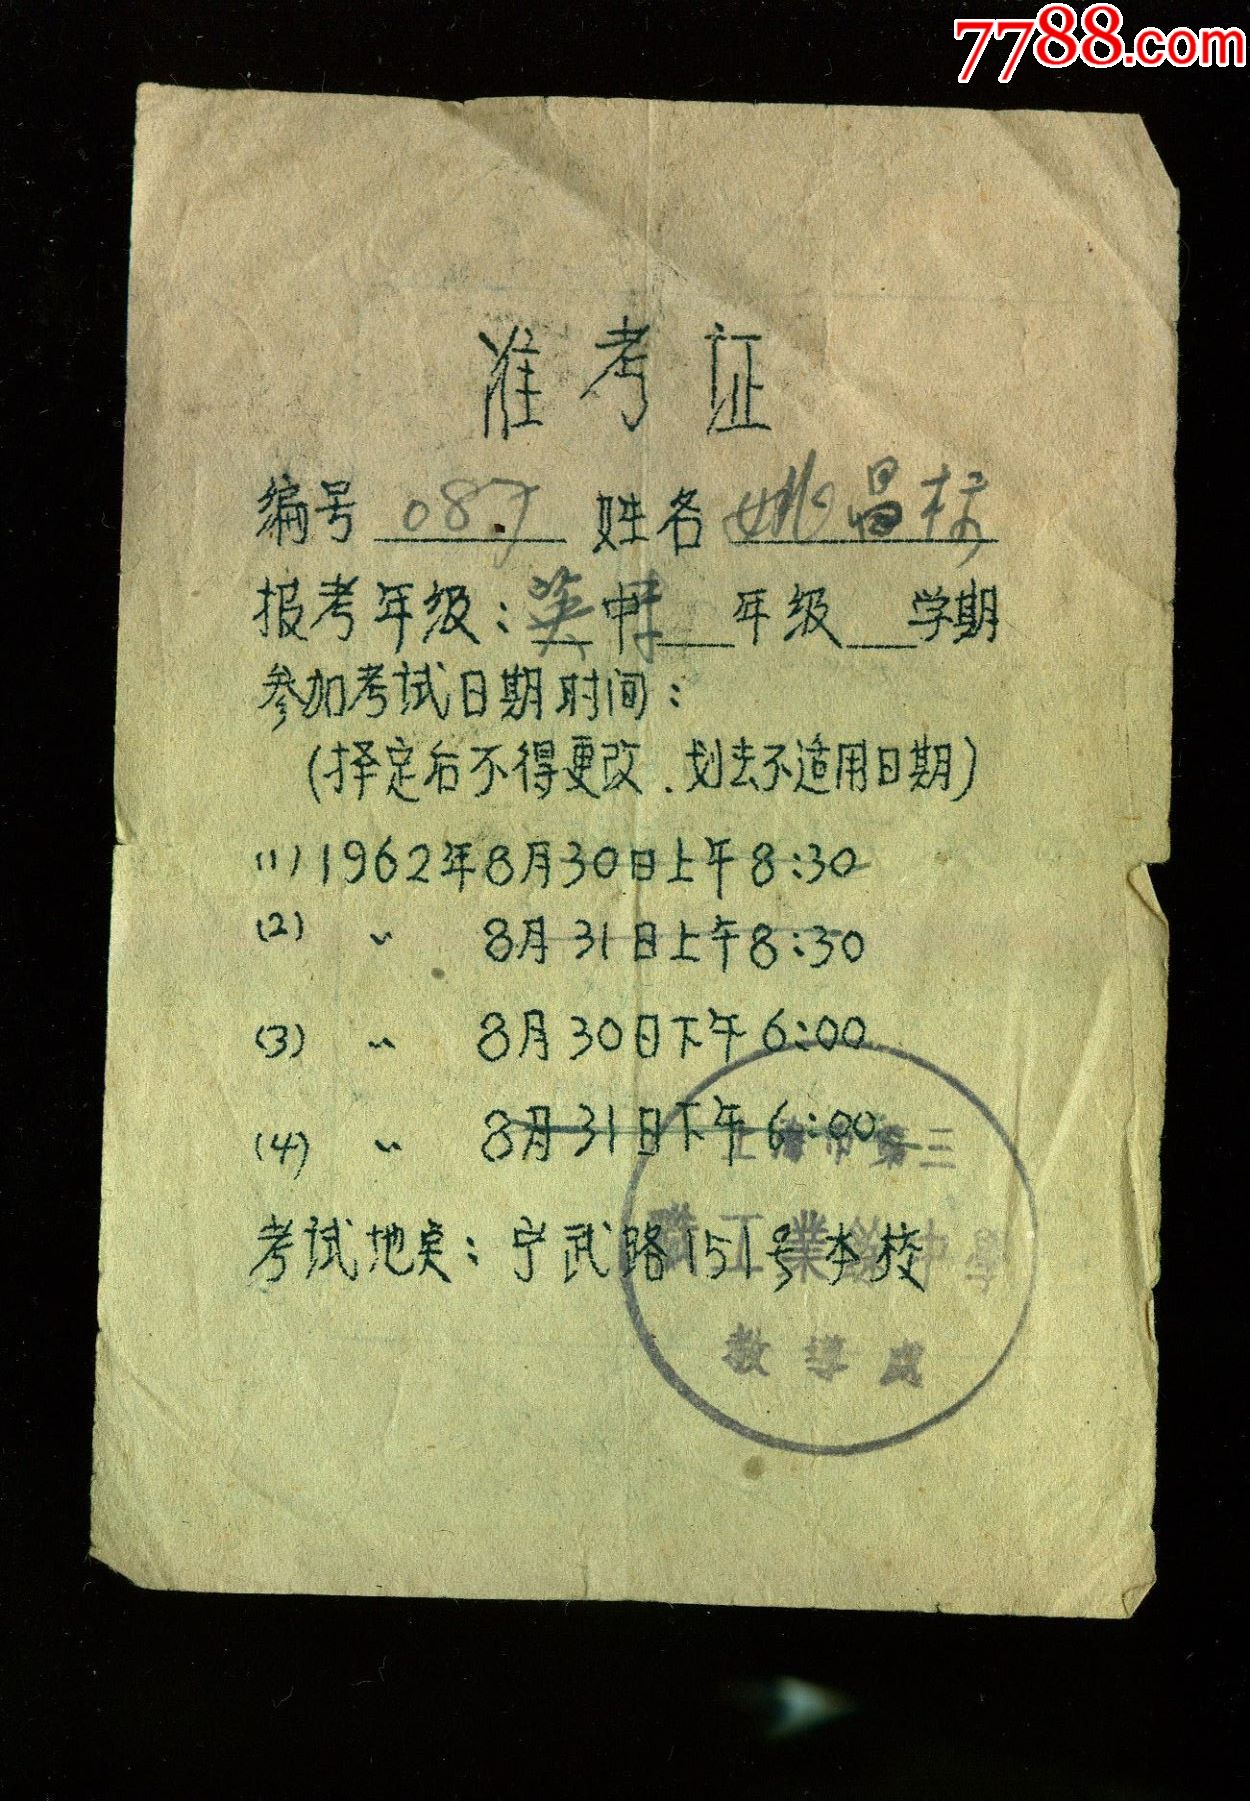 7788.com
准考证
编号 087 姓名 姚昌桂
报考年级：英中 年级 学期
参加考试日期时间：
(择定后不得更改．划去不适用日期)
(1) 1962年8月30日上午8:30
(2) 〃 8月31日上午8:30
(3) 〃 8月30日下午6:00
(4) 〃 8月31日下午6:00
上海市第三
考试地点：宁武路151号本校
職工業餘中學
教導處